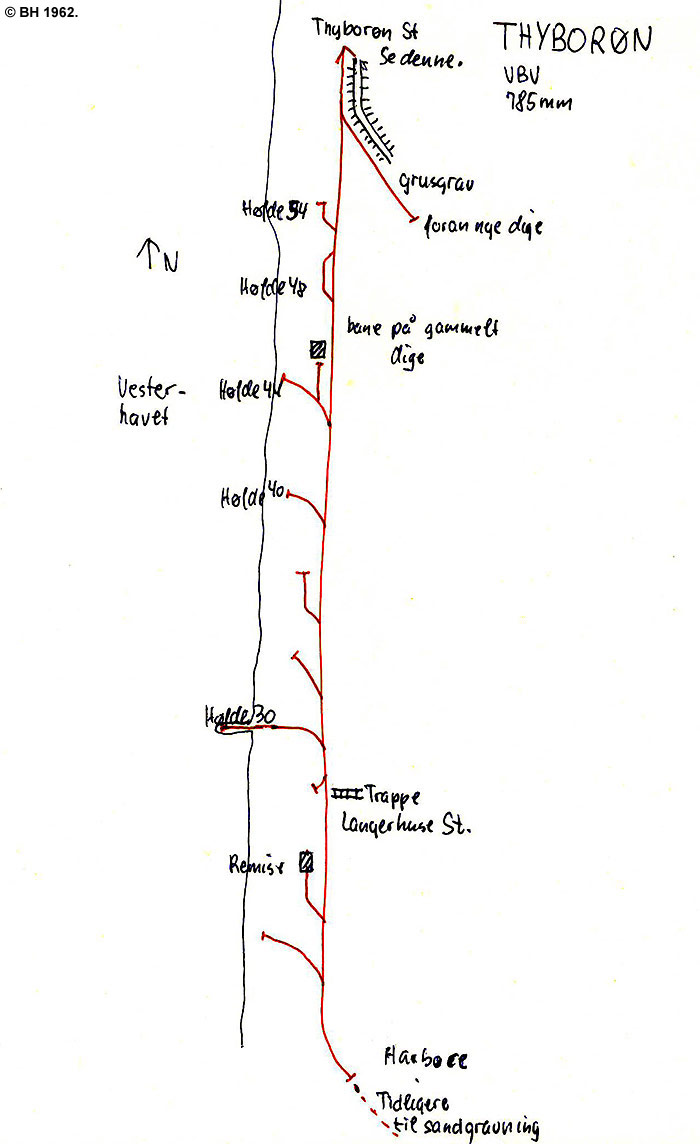 © BH 1962.
THYBORØN
VBV
785mm
Thyborøn St
Se denne.
grusgrav
foran nye dige
Høfde 54
N
Høfde 48
bane på gammelt
dige
Vester-
havet
Høfde 44
Høfde 40
Høfde 30
Trappe
Langerhuse St.
Remise
Harboøre
Tidligere
til sandgravning